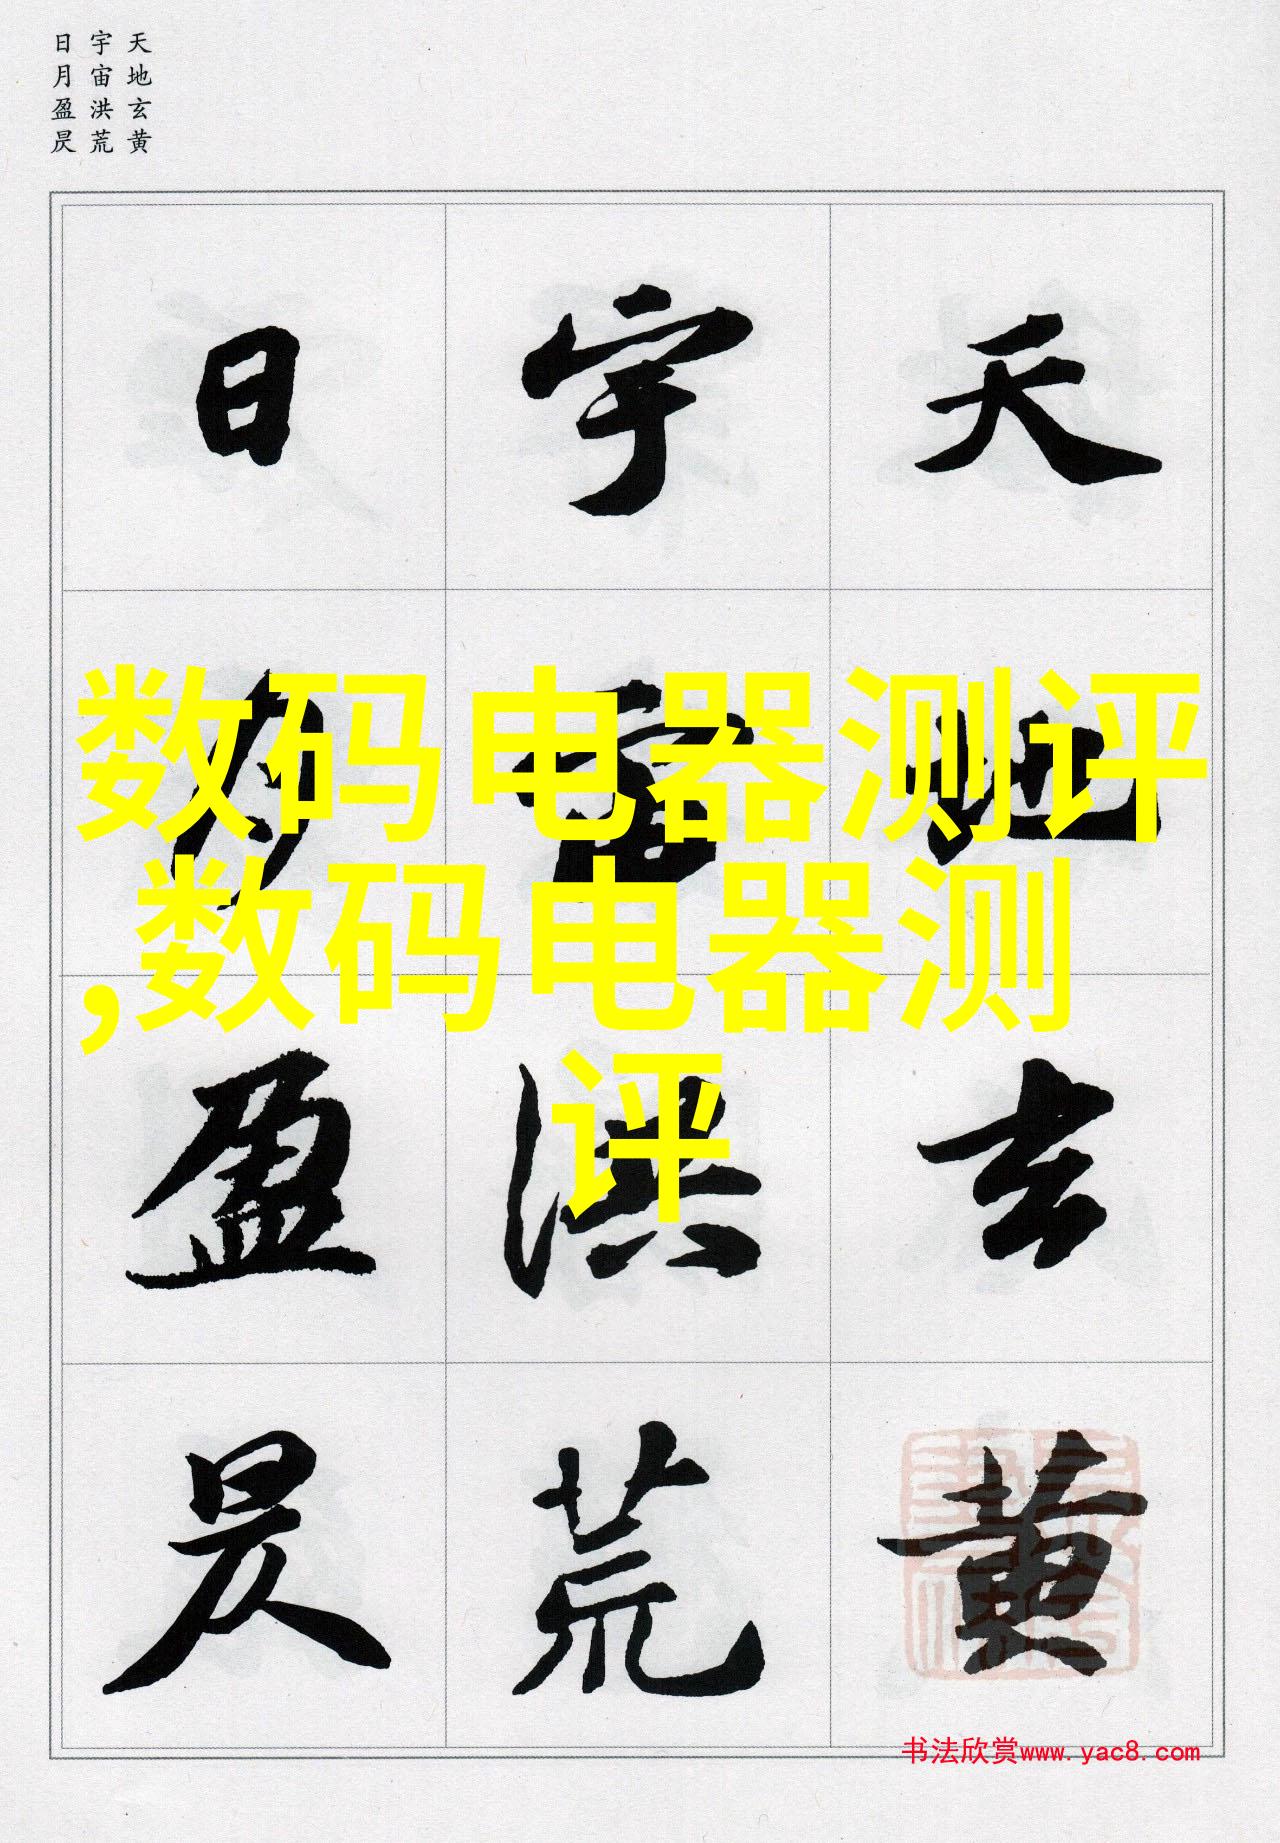 天地玄黄
宇宙洪荒
日月盈昃
天地玄黄
宇宙洪荒
日月盈昃
数码电器测评
,数码电器测
评
书法欣赏www.yac8.com